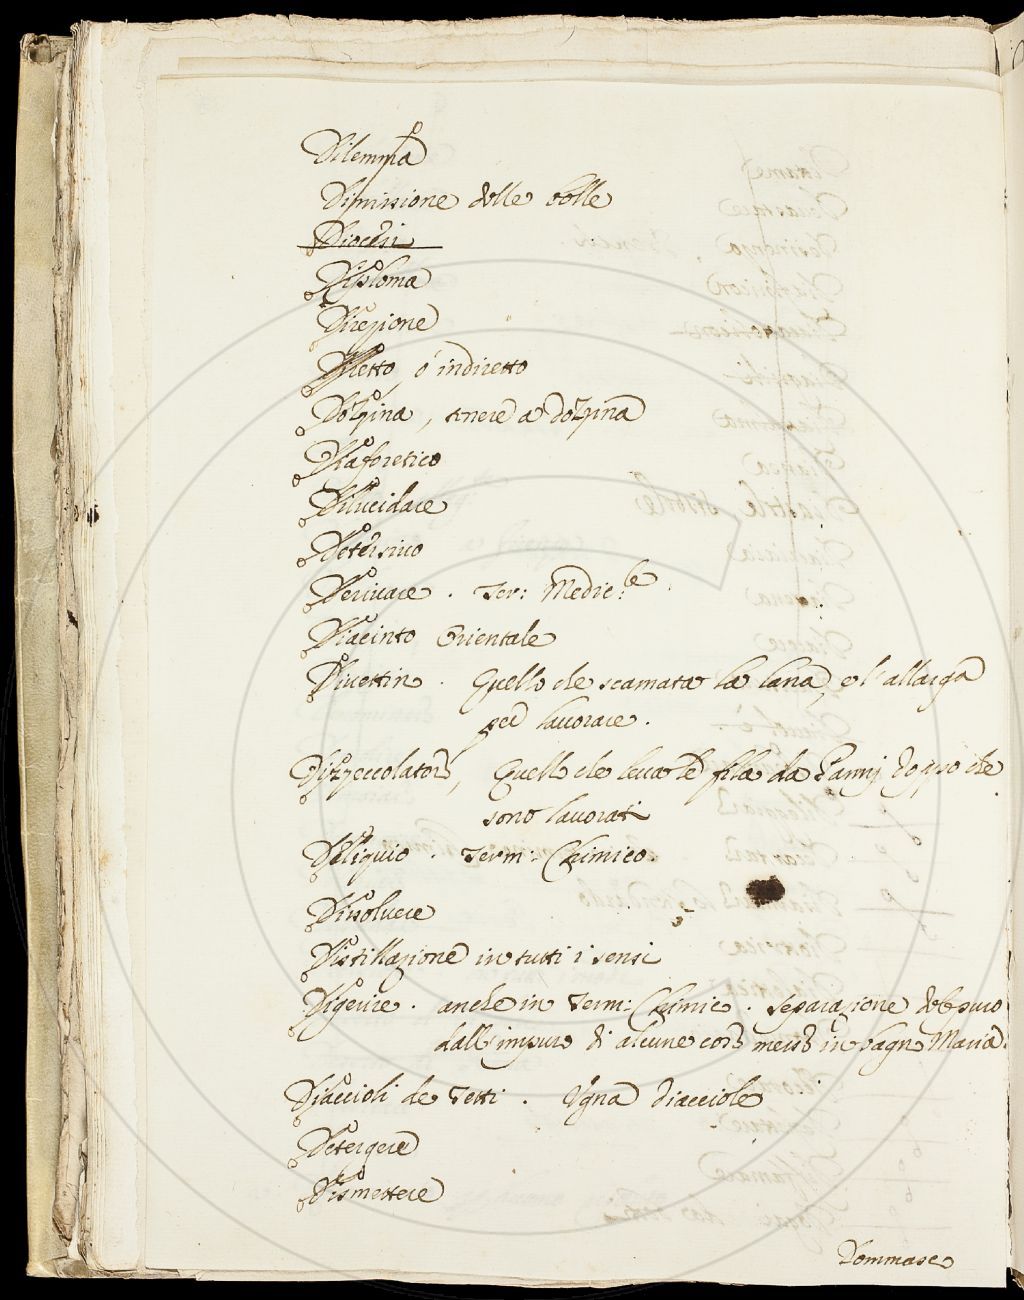 Dilemma
Dimissione delle bolle
Diocesi
Diploma
Direzione
Diretto, ó indiretto
Dozzina, tenere a dozzina
Diaforetico
Dilucidare
Detersivo
Derivare. Ter: Medic:
Diacinto Orientale
Divettin. Quello che scamata la lana, e l'allarga
per lavorare.
Dizzeccolatore, Quello che leva le fila da Panni doppo che
sono lavorati
Deliquio. Term: Chimico.
Dissolvere
Distillazione in tutti i sensi
Digerire. anche in Term: Chimic. separazione del puro
dall'impuro di alcune cose messe in bagno Maria.
Diaccioli de Tetti. Ugna diacciole
Detergere
Dismettere
Dommasc